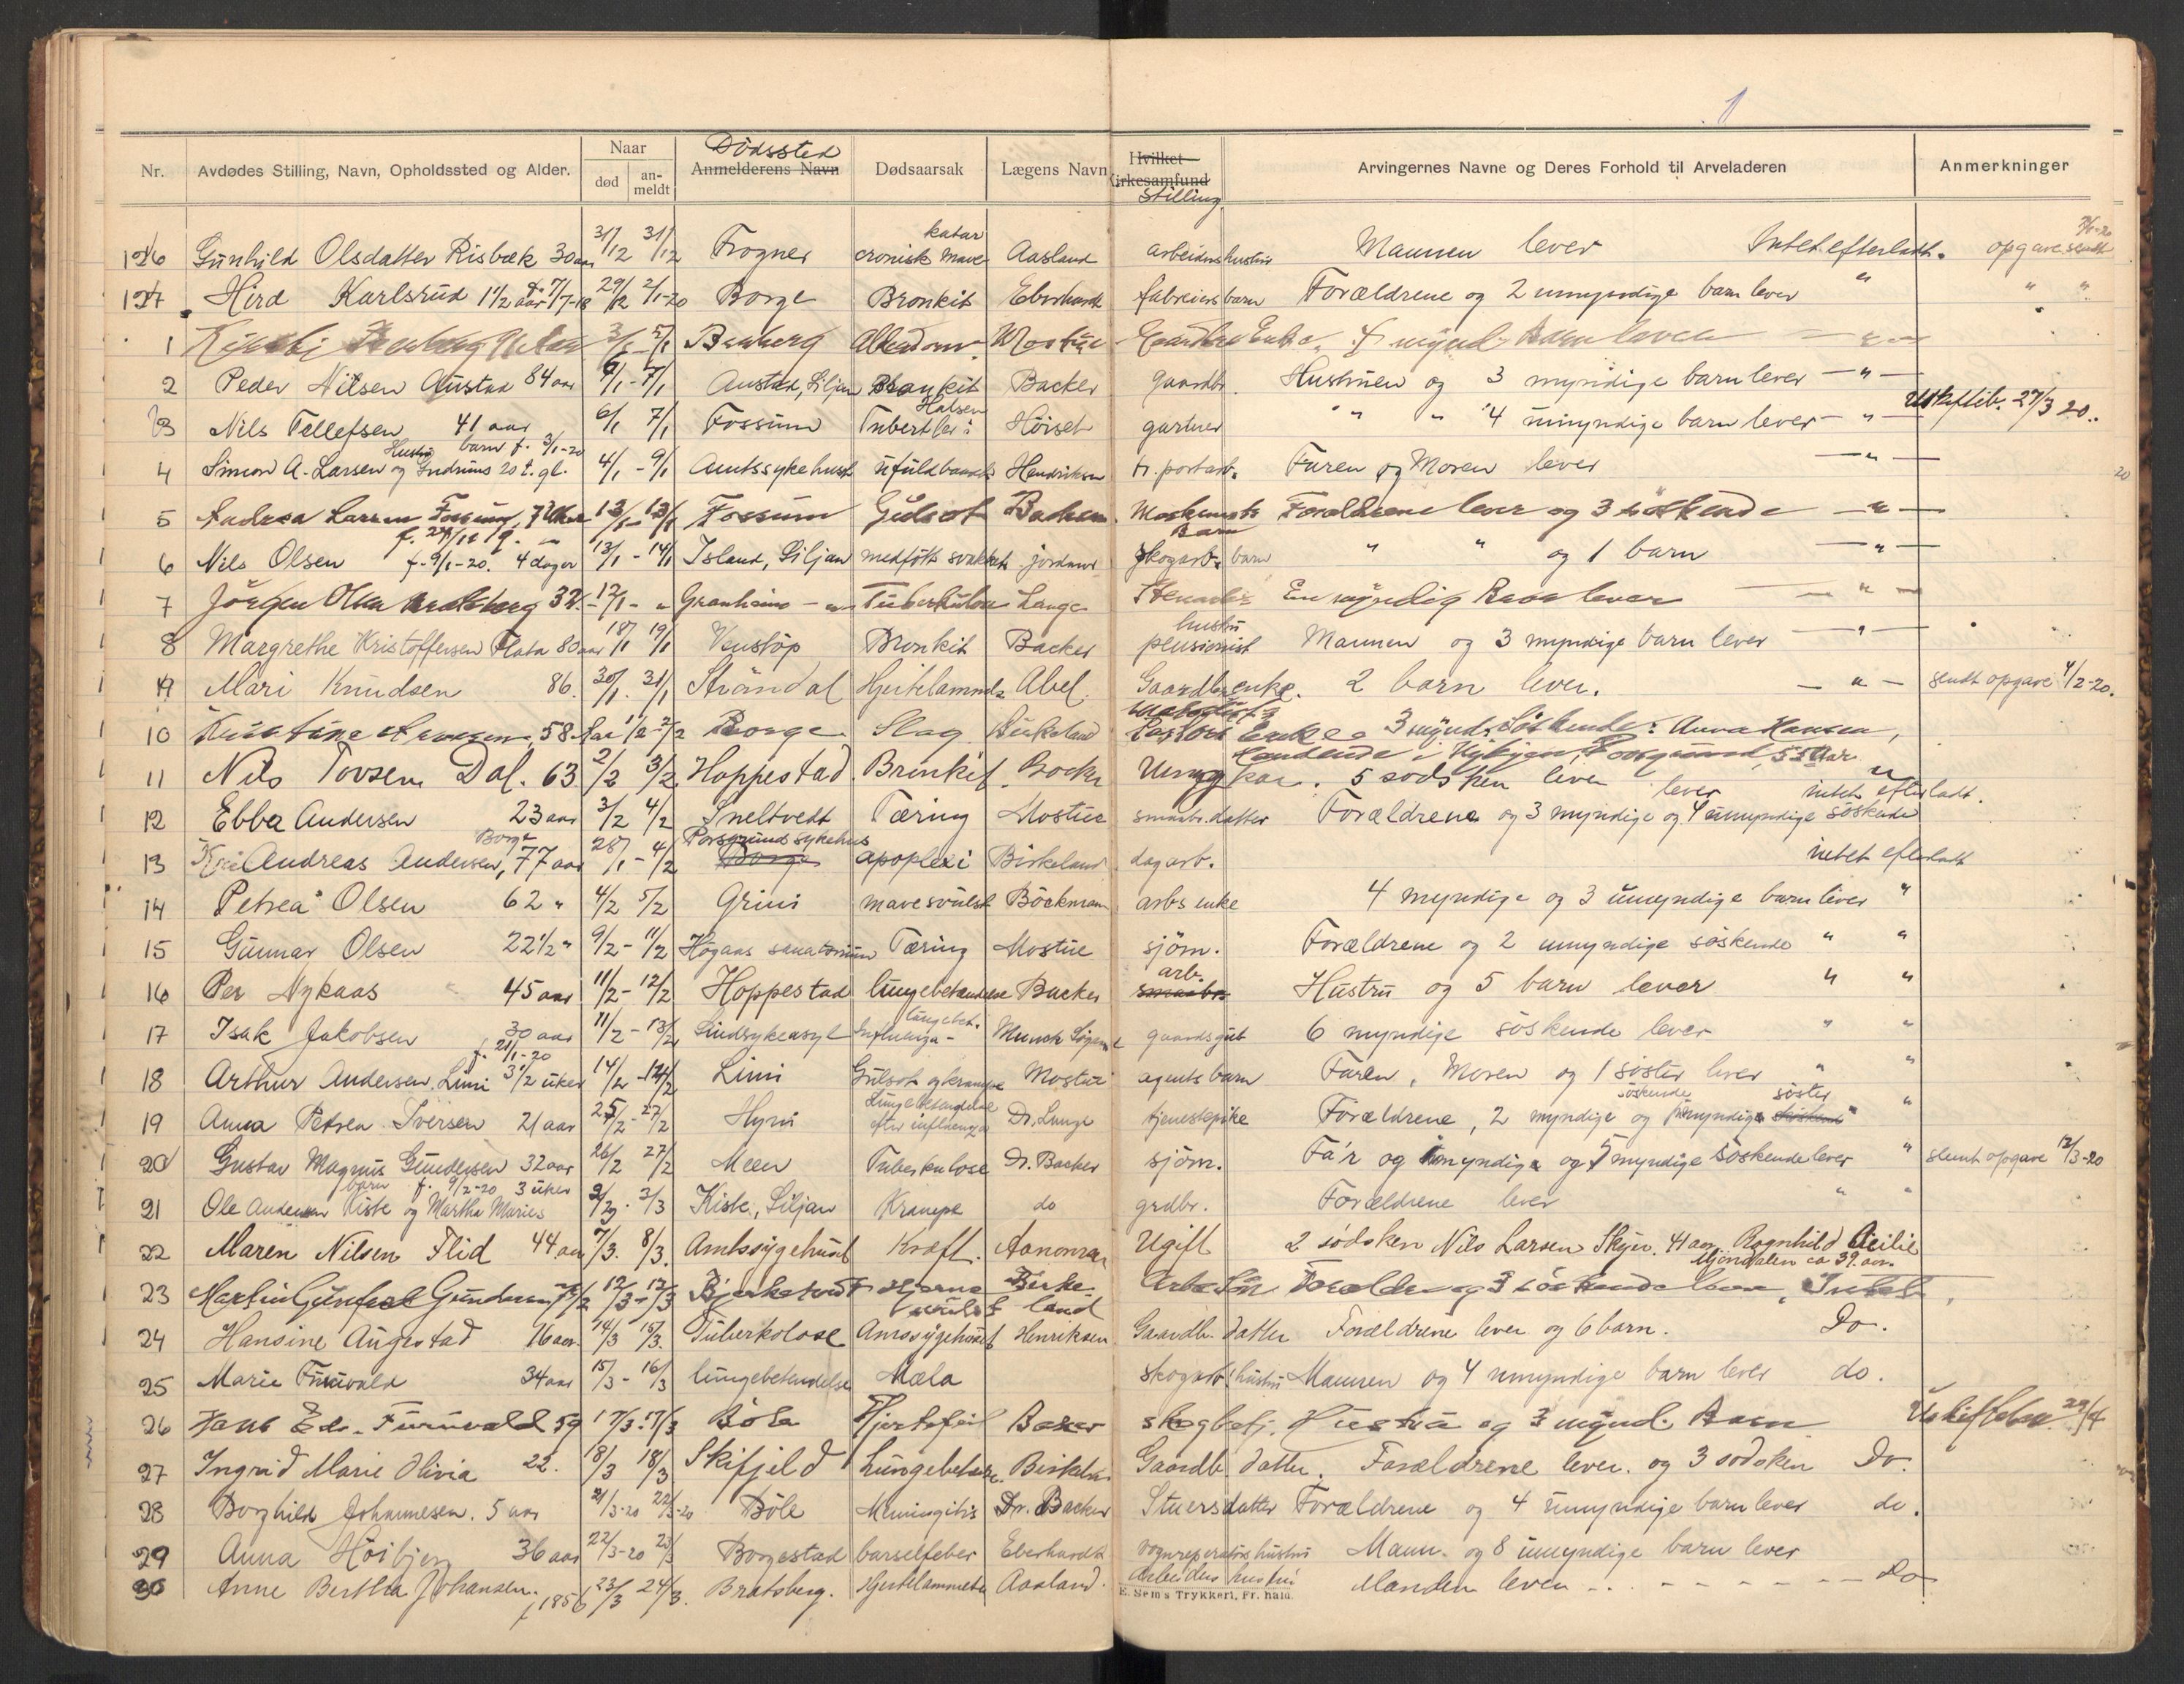 1
Nr. Avdødes Stilling, Navn, Opholdssted og Alder. Naar død an-meldt Dødssted Anmelderens Navn Dødsaarsak Lægens Navn Hvilket Kirkesamfund Stilling Arvingernes Navne og Deres Forhold til Arveladeren Anmerkninger
126 Gunhild Olsdatter Risbæk 30 aar 31/12 31/12 Frogner cronisk mave katar Aasland arbeiders hustru Mannen lever Intet efterladt. opgave sendt
127 Hird Karlsrud 1 1/2 aar f. 7/7-18 29/12 2/1-20 Borge Bronkit Eberhardt fabrikarb barn Forældrene og 2 umyndige barn lever " " "
1 5/1 Alderdom Mostue Enke. 4 mynd. Barn lever — " —
2 Peder Nilsen Austad 84 aar 6/1 - 7/1 Austad, Siljan Bronkit Backer gaardbr. Hustruen og 3 myndige barn lever — " —
3 Nils Tellefsen 41 aar 6/1 7/1 Fossum Tuberkler i Halsen Höiseth gartner " " 4 umyndige barn lever — " — Uskiftib. 27/3 20.
4 Simon A. Larsen og Hustru Gudruns barn f. 3/1-20 20 t. gl. 4/1 - 9/1 Amtssykehuset ufuldbaaret Hendriksen tr. portarb. Faren og Moren lever — " —
5 Andrea Larsen Fossum, 7 Uker f. 27/12 19. 13/1 - 13/1 Fossum Gulsot Backer Maskinists Barn Forældrene lever og 3 søskende — " —
6 Nils Olsen f. 9/1-20. 4 dager 13/1 - 14/1 Island, Siljan medfött svakhet jordmor skogarb. barn " " og 1 barn — " —
7 Jörgen Olsen 32 12/1 - " Granheim Tuberkulose Lange En myndig Bror lever — " —
8 Margrethe Kristoffersen Flata 80 aar 18/1 19/1 Venstöp Bronkit Backer pensionist hustru Mannen og 3 myndige barn lever — " —
9 Mari Knudsen 86. 30/1. 31/1 Strömdal Hjertelammelse Abel Gaardbr enke. 2 barn lever. — " — sendt opgave 4/2-20.
10 Kristine Hansen, 58 Aar 1/2 2/2 Borge Slag Birkeland Enke 3 mynd. Söskende: Anna Hansen, Porsgrund, 55 Aar
11 Nils Tovsen Dal. 63. 2/2 3/2 Hoppestad. Bronkit. Backer Ungkar. 5 sødsken lever "
12 Ebba Andersen 23 aar 3/2 4/2 Sneltvedt Tæring Mostue smaabr. datter Forældrene og 3 myndige og 4 umyndige söskende lever intet efterladt.
13 Andreas Andersen, Borge 77 aar 28/1 - 4/2 Porsgrund sykehus Borge apoplexi Birkeland dagarb. intet efterladt
14 Petrea Olsen 62 " 4/2 5/2 Grini mavesvulst Böckman arbs enke 4 myndige og 3 umyndige barn lever "
15 Gunnar Olsen 22 1/2 " 9/2 - 11/2 Høgaas sanatorium Tæring Mostue sjöm. Forældrene og 2 umyndige søskende " "
16 Per Nykaas 45 aar 11/2 - 12/2 Hoppestad lungebetændelse Backer arb. smaabr. Hustru og 5 barn lever " "
17 Isak Jakobsen 30 aar 11/2 - 13/2 Sindsykeasyl Influenza - lungebet. Munch Søgaard gaardsgut 6 myndige söskende lever " "
18 Arthur Andersen, Limi f. 21/1-20 3 1/2 uker 14/2 - 14/2 Limi Gulsot og krampe Mostue agents barn Faren, Moren og 1 söster lever " "
19 Anna Petrea Iversen 21 aar 25/2 - 27/2 Hyni Lungebetændelse efter influenza Dr. Lunge tjenestepike Forældrene, 2 myndige söskende og umyndige söster " "
20 Gustav Magnus Gundersen 32 aar 26/2 27/2 Meen Tuberkulose Dr. Backer sjöm. Fa'r og umyndige og 5 myndige söskende lever " sendt opgave 12/3-20
21 Ole Andersen Kiste og Martha Maries barn f. 9/2-20 3 uker 2/3 Kiste, Siljan Krampe do grdbr. Forældrene lever " "
22 Maren Nilsen Flid 44 aar 7/3. 8/3. Amtssygehuset Kræft. Aanonsen Ugift 2 sødsken Nils Larsen Skyer. 41 aar, Ragnhild Cicilie Mjøndalen ca 39 aar.
23 Martin Gundersen 12/3 - 13/3 Bjerketvedt Hjernesvulst Birkeland Arbs Sön Forældre og 3 söskende lever, Intet.
24 Hansine Augestad 16 aar. 14/3 15/3. Tuberkolose Amssygehuset Henriksen Gaardb. datter Forældrene lever og 6 barn. Do.
25 Marie Furuvald 34 aar 15/3 - 16/3 lungebetendelse Mæla skogarb. hustru Mannen og 4 umyndige barn lever do.
26 Hans Edv. Furuvald 59 17/3. 17/3 Böle Hjertefeil Backer skogbetj. Hustru og 3 mynd. Barn Uskiftebo. 29/4
27 Ingrid Marie Olivia 22. 18/3 18/3 Skifjeld Lungebetæn. Birkeland Gaardb. datter. Forældrene lever. og 3 sødsken Do.
28 Borghild Johannesen. 5 aar 21/3-20 22/3-20 Böle Meningitis Dr. Backer Stuers datter Forældrene og 4 umyndige barn lever do.
29 Anna Höibjerg 36 aar 22/3-20 23/3 Borgestad barselfeber Eberhardt vognreperatörs hustru Mann. og 8 umyndige barn lever
30 Anne Bertha Johansen. f. 1856 23/3 24/3. Bratsberg. Hjertelammelse Aasland. Arbeiders hustru Manden lever - - - - - Do
E. Sem's Trykkeri, Fr. hald.